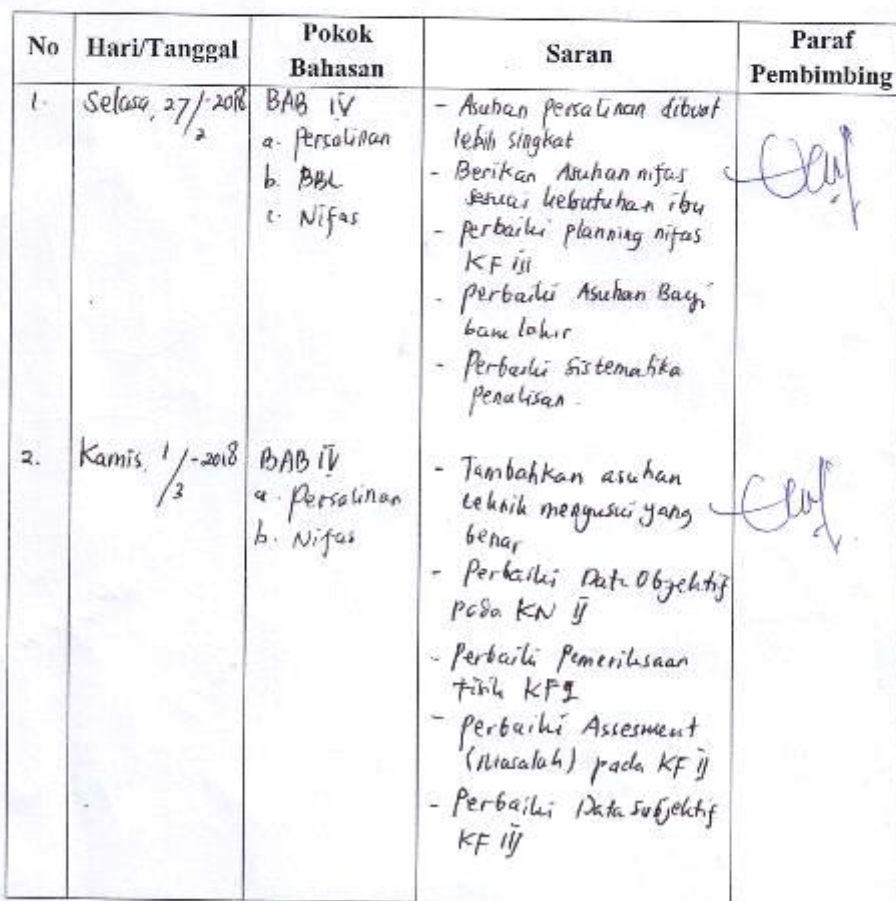 No Hari/Tanggal Pokok Bahasan Saran Paraf Pembimbing
1. Selasa, 27/2-2018
BAB IV
a. Persalinan
b. BBL
c. Nifas
- Asuhan persalinan dibuat
lebih singkat
- Berikan Asuhan nifas
sesuai kebutuhan ibu
- perbaiki planning nifas
KF iii
- perbaiki Asuhan Bayi
baru lahir
- Perbaiki Sistematika
Penulisan.
2. Kamis, 1/3-2018
BAB IV
a. Persalinan
b. Nifas
- Tambahkan asuhan
teknik menyusui yang
benar
- Perbaiki Data Obyektif
pada KN II
- Perbaiki Pemeriksaan
fisik KF 1
- Perbaiki Assesment
(Masalah) pada KF II
- Perbaiki Data Subjektif
KF III